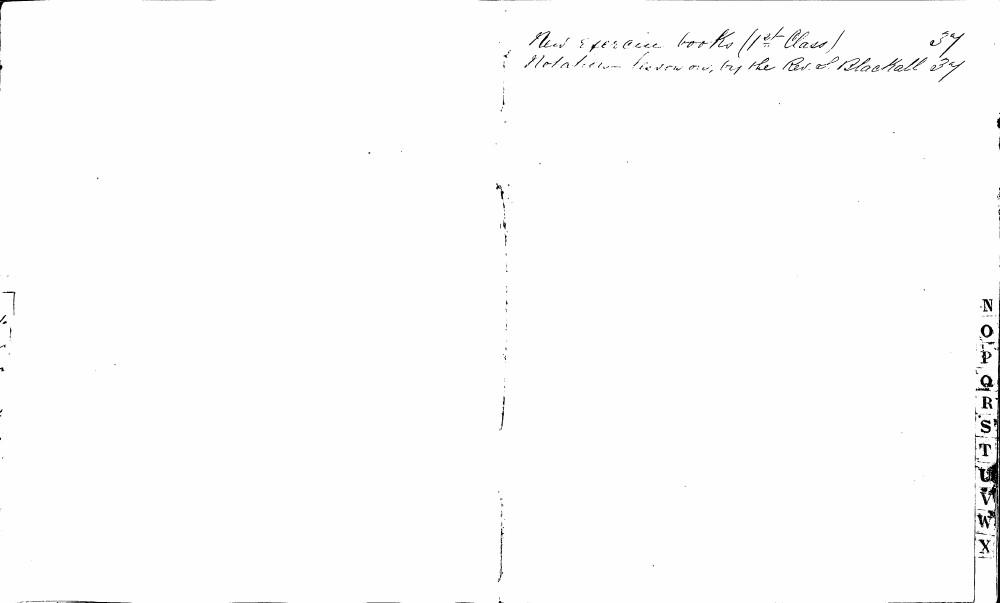 New Exercise books (1st Class) 37
Notation lesson on, by the Rev. S. Blackall 37
N
O
P
Q
R
S
T
U
V
W
X